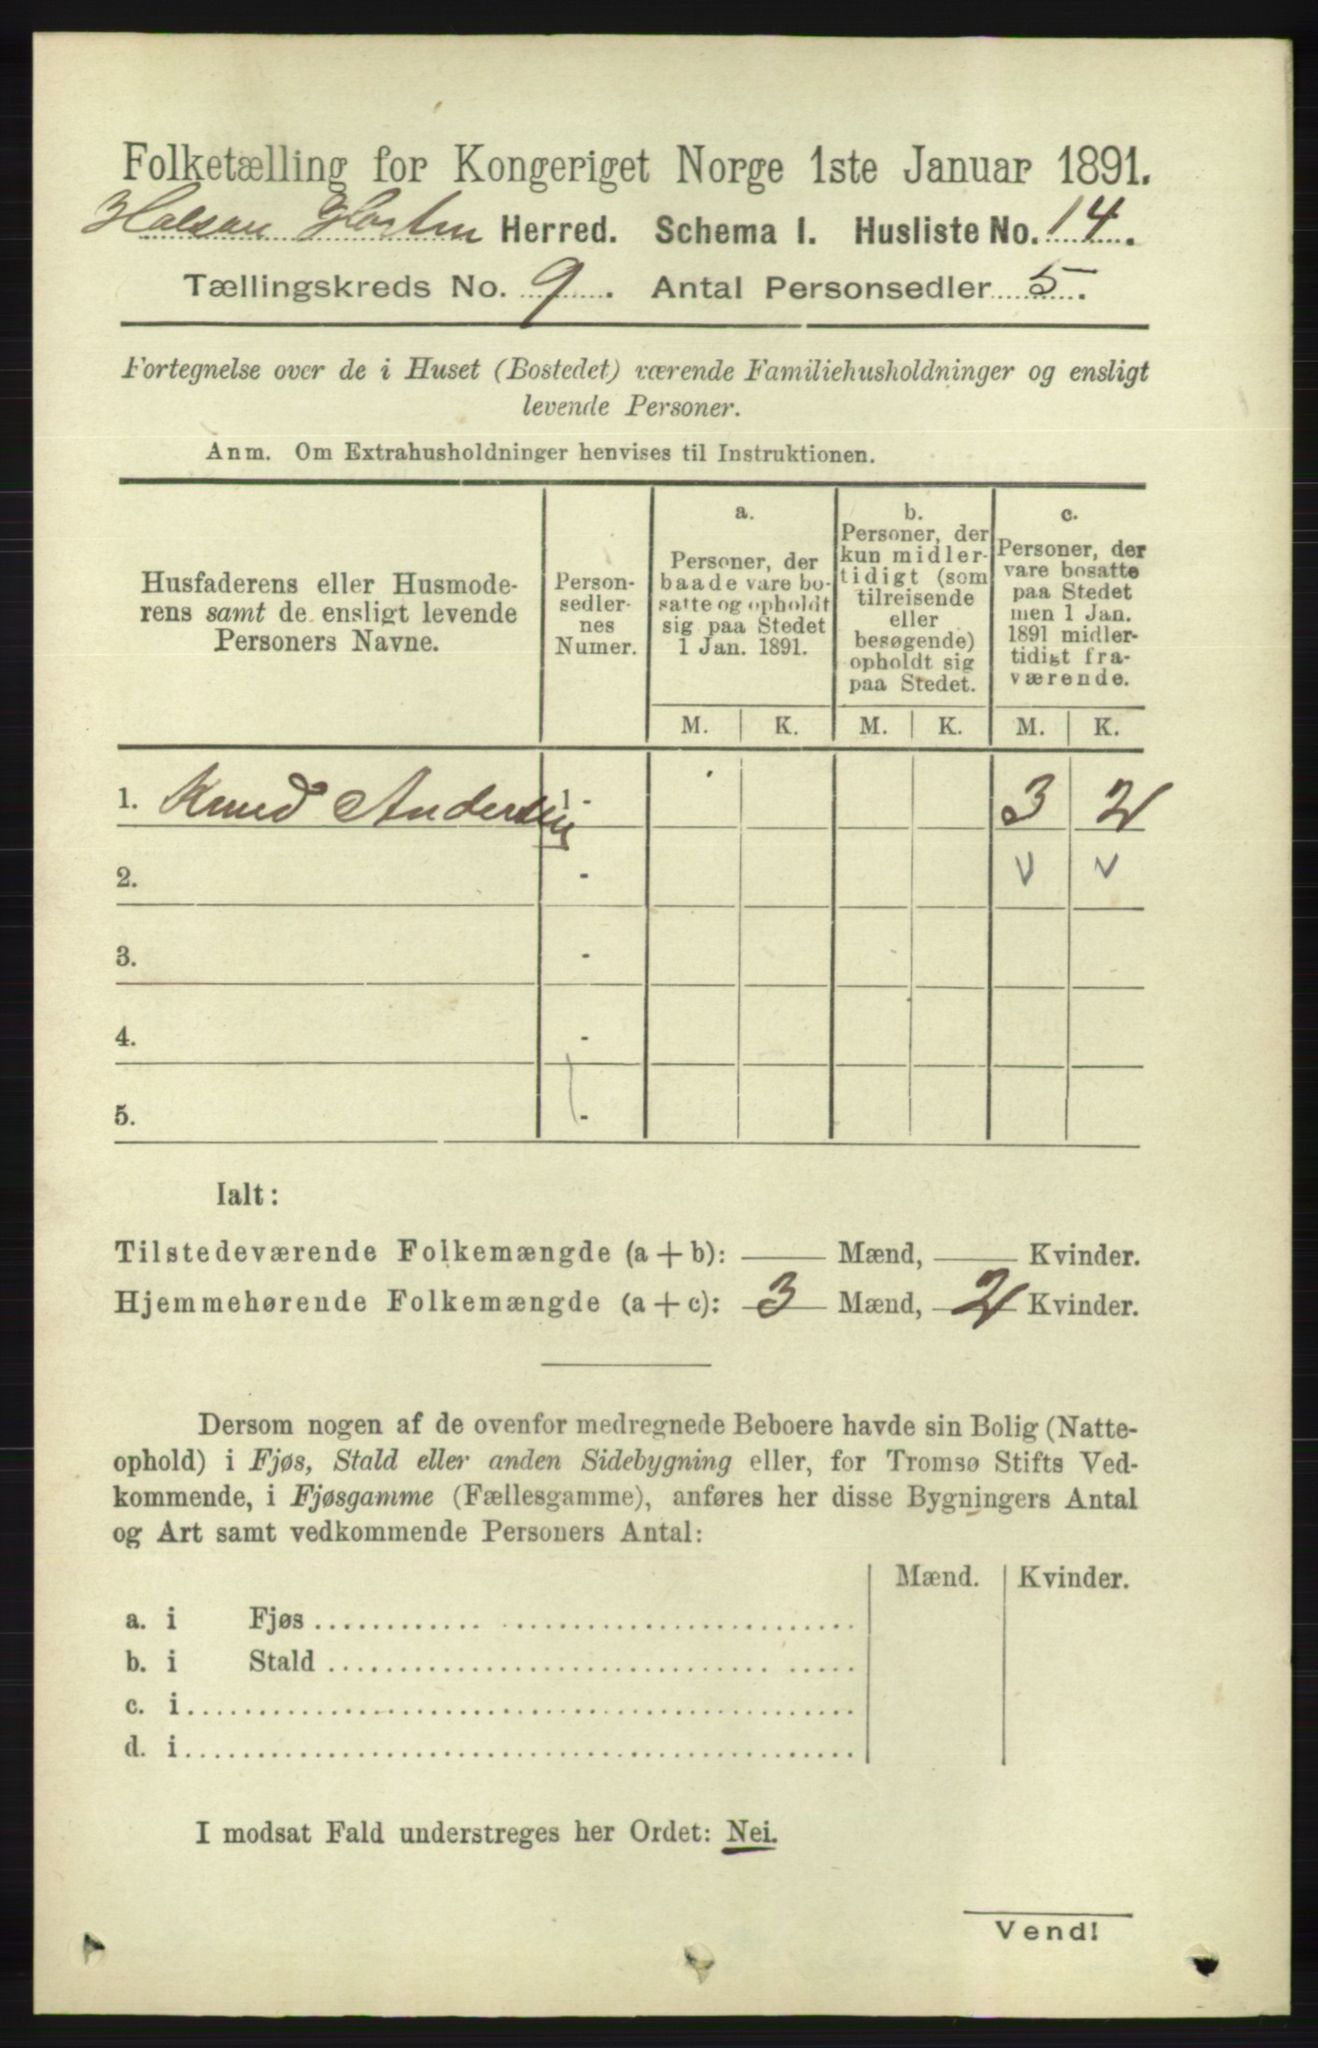 Folketælling for Kongeriget Norge 1ste Januar 1891.
Herred. Schema I. Husliste No. 14.
Tællingskreds No. 9. Antal Personsedler 5.
Fortegnelse over de i Huset (Bostedet) værende Familiehusholdninger og ensligt
levende Personer.
Anm. Om Extrahusholdninger henvises til Instruktionen.
Husfaderens eller Husmode-
rens samt de ensligt levende
Personers Navne.
Person-
sedler-
nes
Numer.
a.
Personer, der
baade vare bo-
satte og opholdt
sig paa Stedet
1 Jan. 1891.
b.
Personer, der
kun midler-
tidigt (som
tilreisende
eller
besøgende)
opholdt sig
paa Stedet.
c.
Personer, der
vare bosatte
paa Stedet
men 1 Jan.
1891 midler-
tidigt fra-
værende.
M. K. M. K. M. K.
1. Knud Andersen 1 - 3 2
2. - v v
3. -
4. -
5. -
Ialt:
Tilstedeværende Folkemængde (a + b): Mænd, Kvinder.
Hjemmehørende Folkemængde (a + c): 3 Mænd, 2 Kvinder.
Dersom nogen af de ovenfor medregnede Beboere havde sin Bolig (Natte-
ophold) i Fjøs, Stald eller anden Sidebygning eller, for Tromsø Stifts Ved-
kommende, i Fjøsgamme (Fællesgamme), anføres her disse Bygningers Antal
og Art samt vedkommende Personers Antal:
Mænd. Kvinder.
a. i Fjøs
b. i Stald
c. i
d. i
I modsat Fald understreges her Ordet: Nei.
Vend!